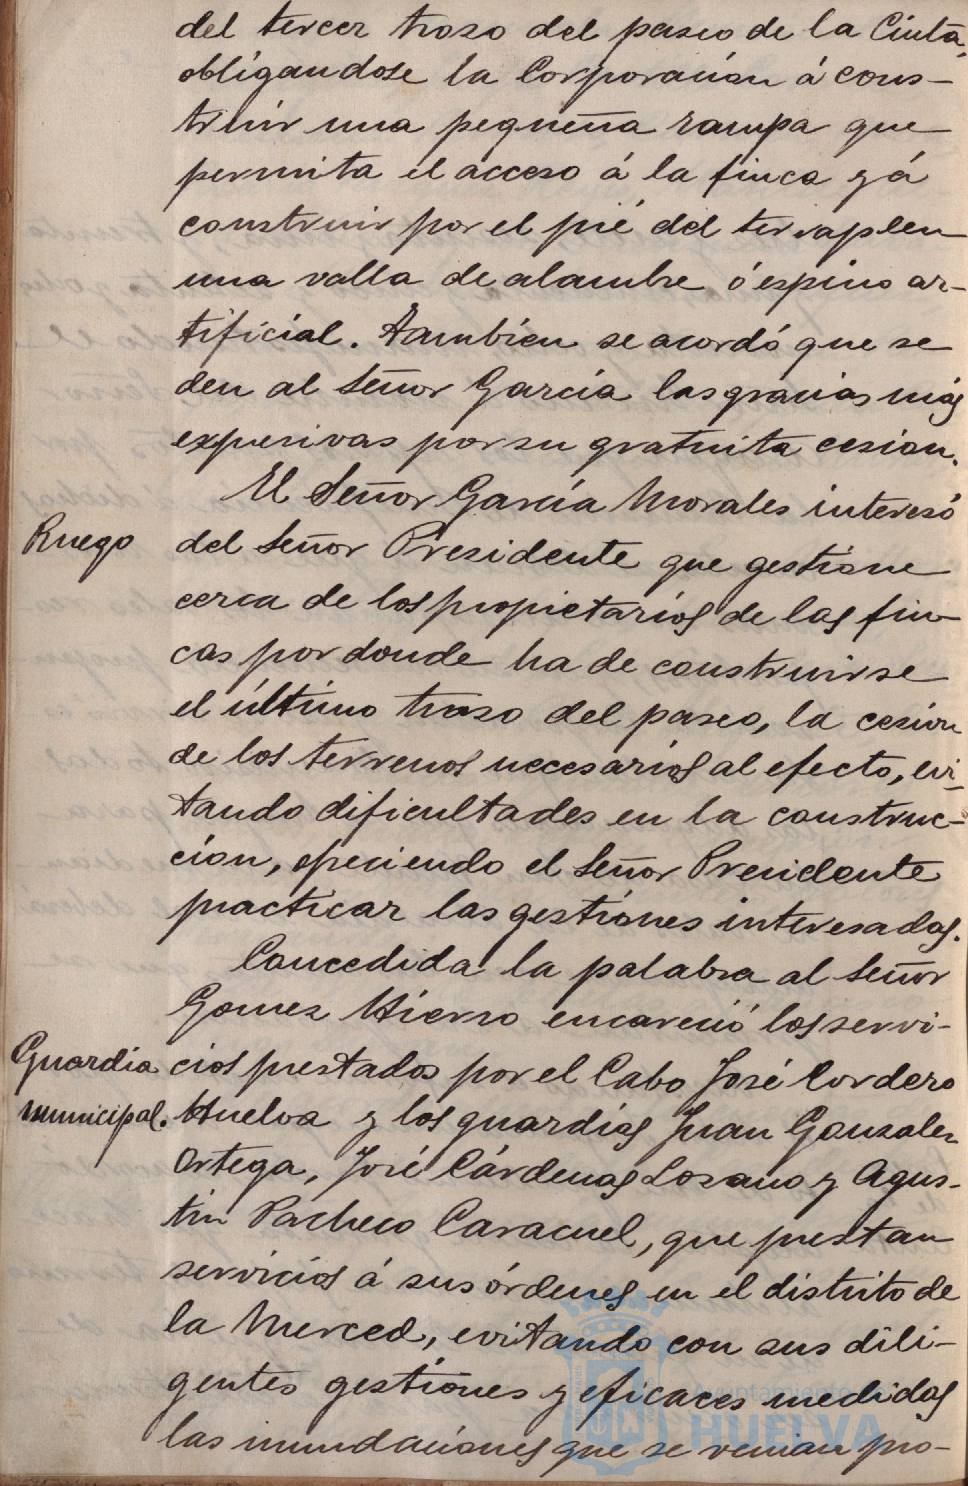 del tercer trozo del paseo de la Cinta,
obligandose la Corporación á cons-
truir una pequeña rampa que
permita el acceso á la finca y á
construir por el pié del terraplen
una valla de alambre ó espino ar-
tificial. Tambien se acordó que se
den al Señor García las gracias más
expresivas por su gratuita cesion.
El Señor García Morales interesó
Ruego
del Señor Presidente que gestione
cerca de los propietarios de las fin-
cas por donde ha de construirse
el último trozo del paseo, la cesion
de los terrenos necesarios al efecto, evi-
tando dificultades en la construc-
ción, ofreciendo el Señor Presidente
practicar las gestiones interesadas.
Concedida la palabra al Señor
Gomez Hierro encareció los servi-
Guardia
municipal.
cios prestados por el Cabo José Cordero
Huelva y los guardias Juan Gonzalez
Ortega, José Cárdenas Lozano y Agus-
tin Pacheco Caracuel, que prestan
servicios á sus órdenes en el distrito de
la Merced, evitando con sus dili-
gentes gestiones y eficaces medidas
las inundaciones que se venian pro-
Ayuntamiento
HUELVA